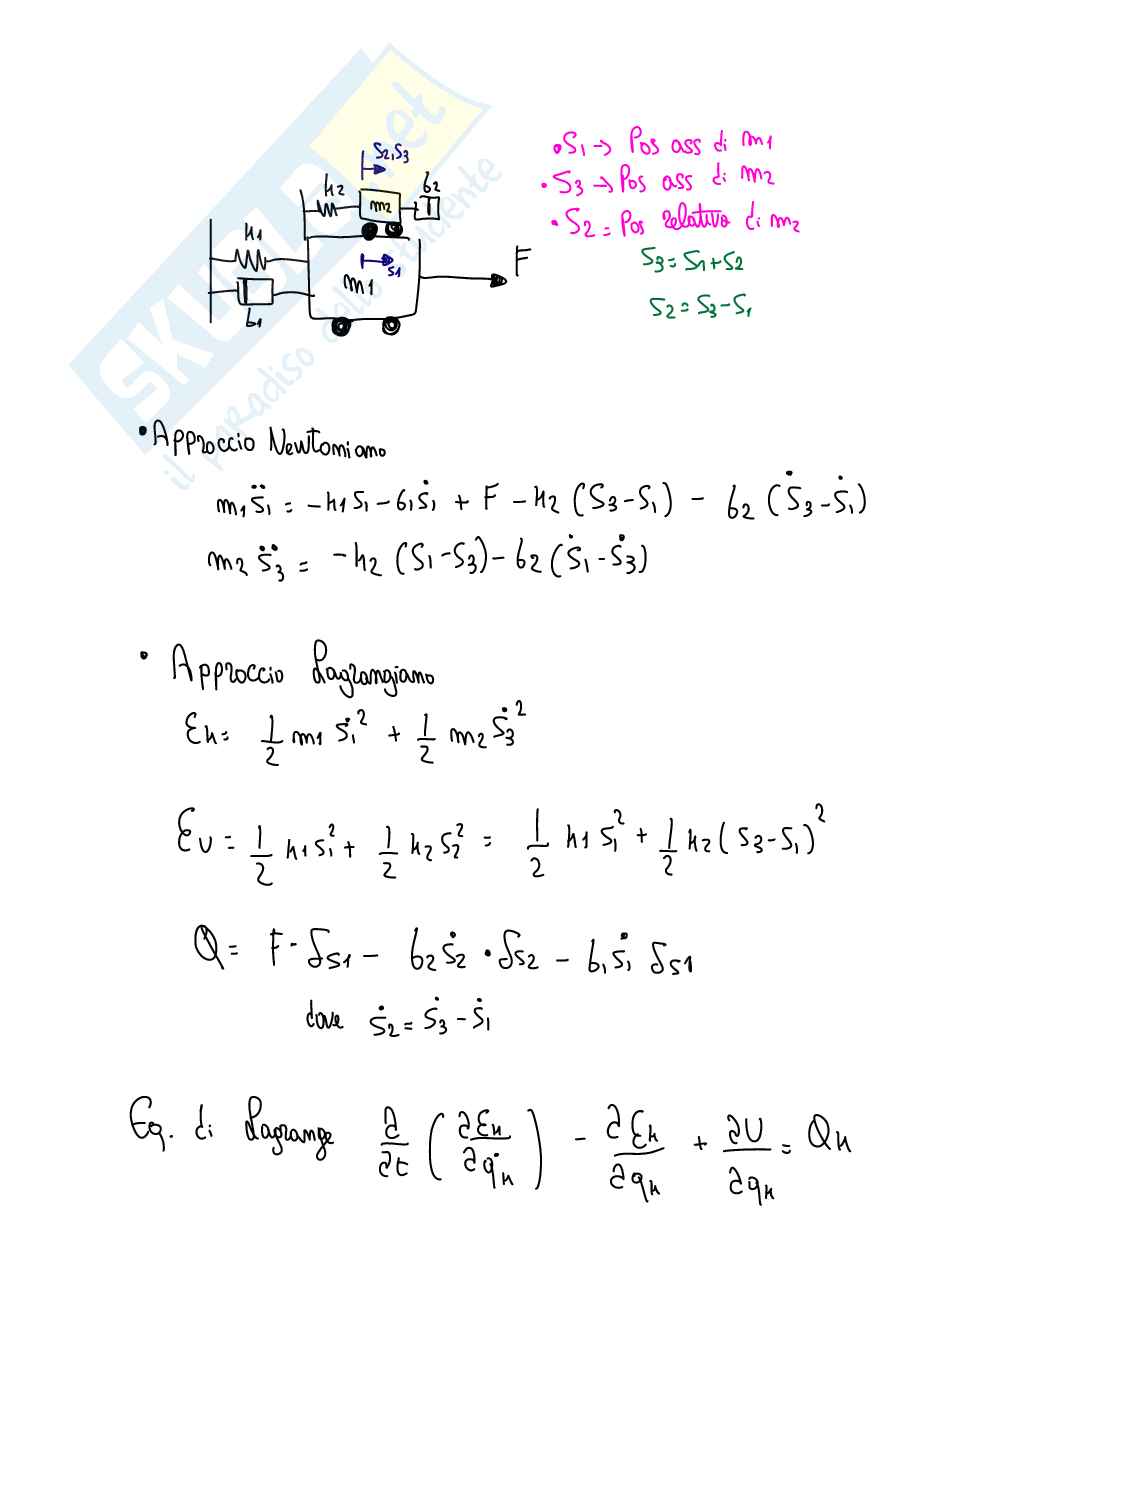 S2,S3
k2
m2
b2
k1
m1
S1
F
b1
• S1 → Pos ass di m1
• S3 → Pos ass di m2
• S2 = Pos relativa di m2
S3 = S1 + S2
S2 = S3 - S1
SKUOLA.net
il paradiso dello studente
• Approccio Newtoniano
m1 S̈1 = -k1 S1 - b1 Ṡ1 + F - k2 (S3 - S1) - b2 (Ṡ3 - Ṡ1)
m2 S̈3 = -k2 (S1 - S3) - b2 (Ṡ1 - Ṡ3)
• Approccio Lagrangiano
Ek = 1/2 m1 Ṡ1² + 1/2 m2 Ṡ3²
EU = 1/2 k1 S1² + 1/2 k2 S2² = 1/2 k1 S1² + 1/2 k2 (S3 - S1)²
Q = F · δS1 - b2 Ṡ2 · δS2 - b1 Ṡ1 δS1
dove Ṡ2 = Ṡ3 - Ṡ1
Eq. di Lagrange ∂/∂t (∂Ek/∂q̇k) - ∂Ek/∂qk + ∂U/∂qk = Qk